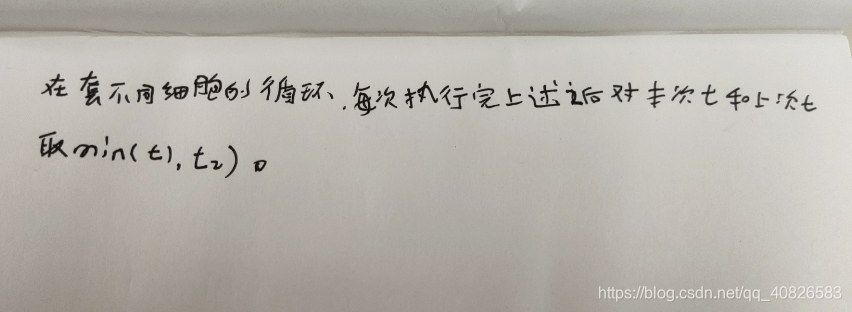 在套不同细胞的循环,每次执行完上述之后对本次t和上次t
取min(t1,t2)。
https://blog.csdn.net/qq_40826583